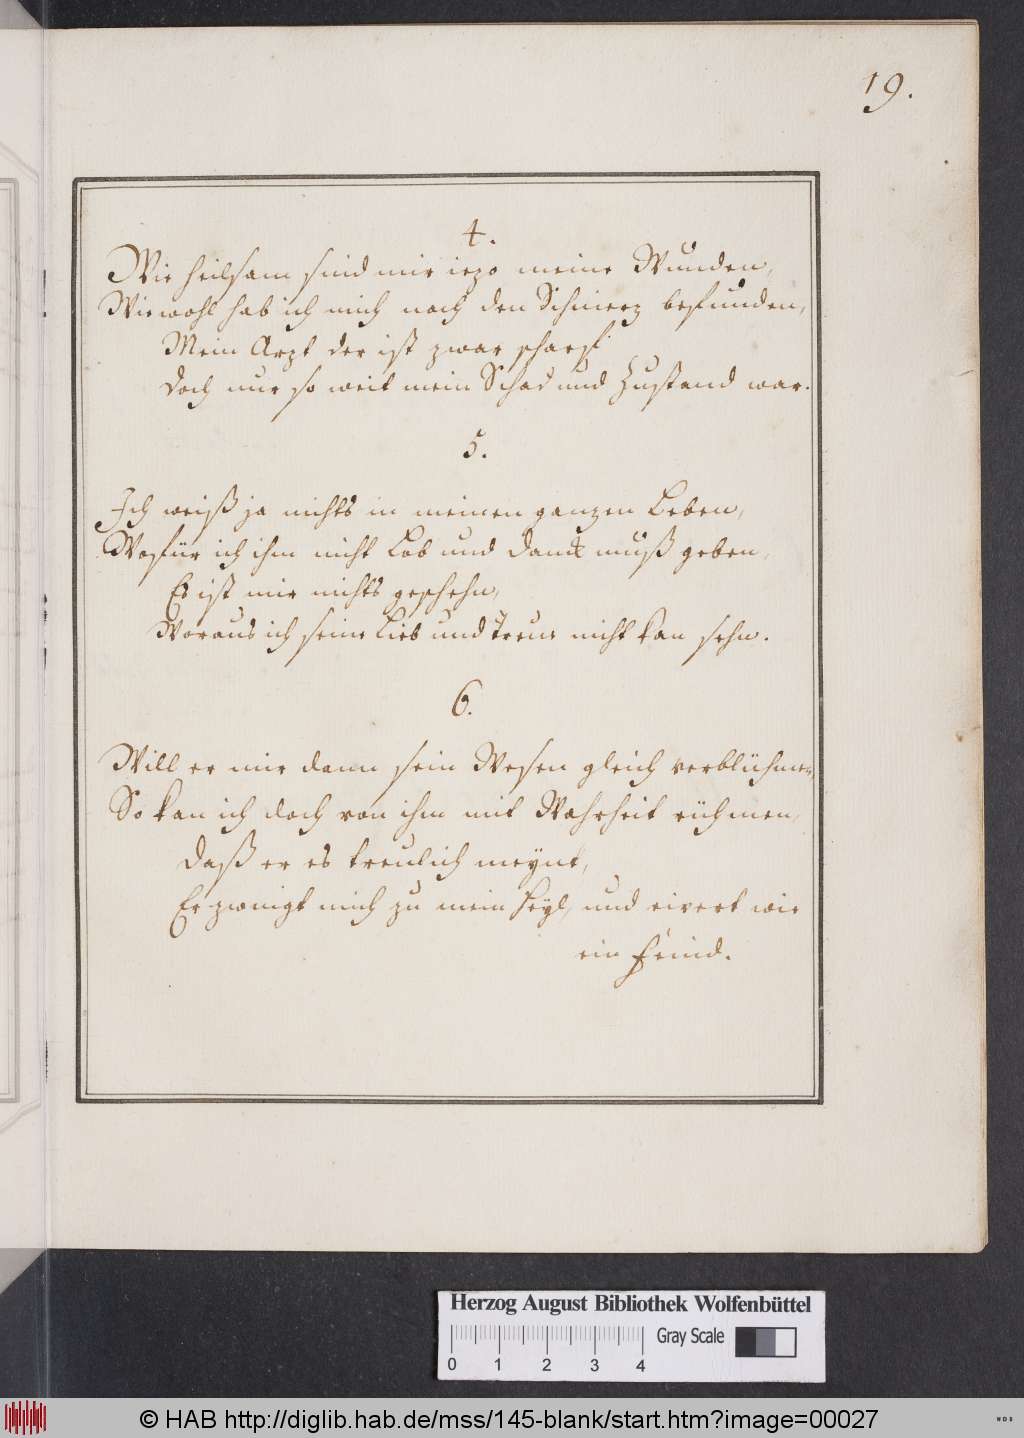 19.
4.
Wie heilsam sind mir iezo meine Wunden,
Wie wohl hab ich mich nach den Schmerz befunden,
Mein Arzt der ist zwar scharf
Doch nur so weit mein Schad und Zustand war.
5.
Ich weiß ja nichts in meinen ganzen Leben,
Wofür ich ihm nicht Lob und Danck muß geben,
Es ist mir nichts geschehn,
Woraus ich seine Lieb und Treue nicht kan sehn.
6.
Will er mir dann sein Wesen gleich verblühmen,
So kan ich doch von ihm mit Wahrheit rühmen,
Daß er es treulich meynt,
Er zwingt mich zu mein Heyl, und eivert wie
ein Feind.
Herzog August Bibliothek Wolfenbüttel
Gray Scale
0 1 2 3 4
© HAB http://diglib.hab.de/mss/145-blank/start.htm?image=00027